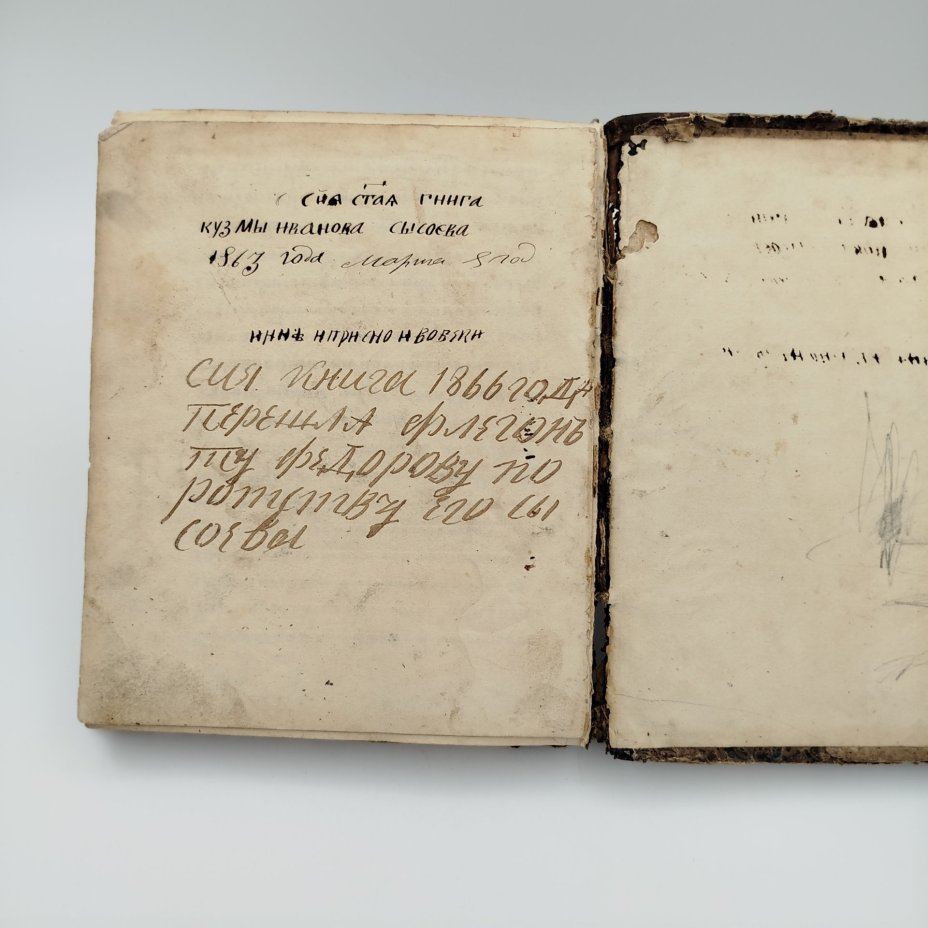 сия стая гнига
кузмы иванова сысоева
1863 года марта 8 год
нинѣ иприсно ивовѣки
сия книга 1866 года
перешла флегонъ
ту федорову по
его сы
соева